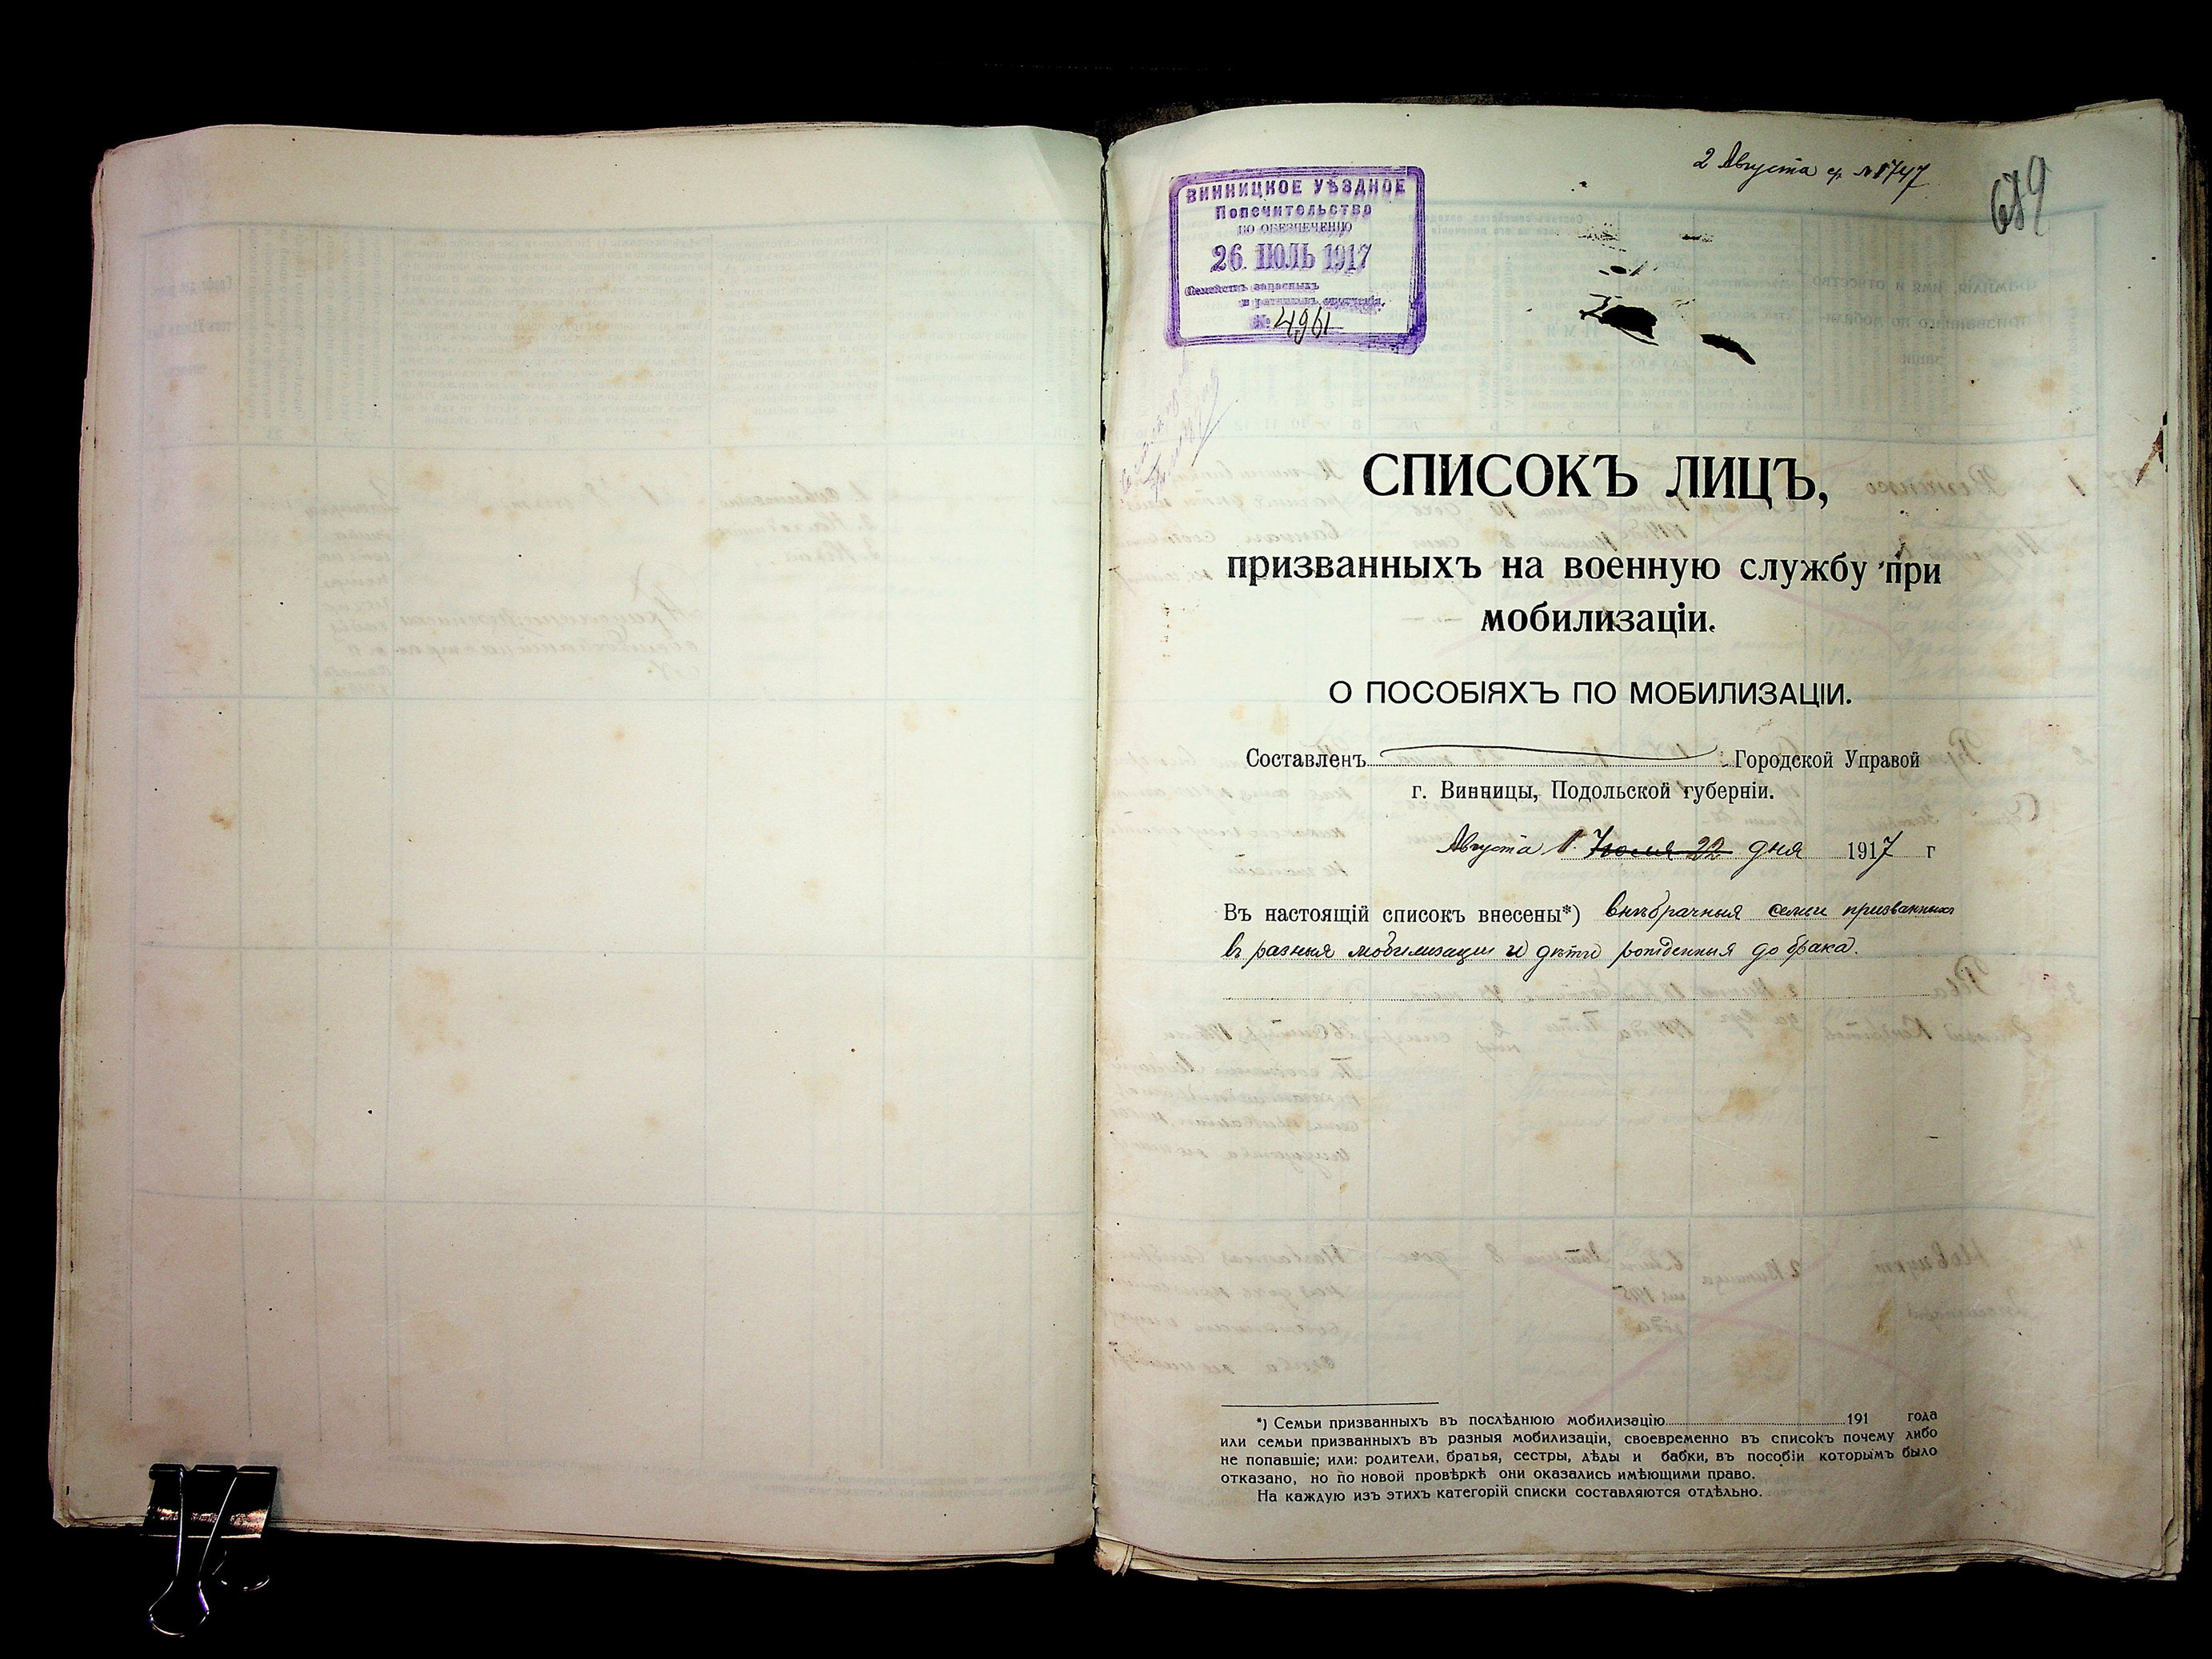 2 Августа ср. №1747
689
ВИННИЦКОЕ УѢЗДНОЕ
Попечительство
ПО ОБЕЗПЕЧЕНІЮ
26 ІЮЛЬ 1917
Семействъ запасныхъ
и ратниковъ ополченія.
№ 4961
СПИСОКЪ ЛИЦЪ,
призванныхъ на военную службу при
мобилизаціи.
О ПОСОБІЯХЪ ПО МОБИЛИЗАЦІИ.
Составленъ Городской Управой
г. Винницы, Подольской губерніи.
Августа 1. Іюля 22 дня 1917 г
Въ настоящій списокъ внесены*) внѣбрачныя семьи призванныхъ
въ разныя мобилизации и дѣти рожденныя до брака.
*) Семьи призванныхъ въ послѣднюю мобилизацію 191 года
или семьи призванныхъ въ разныя мобилизаціи, своевременно въ списокъ почему либо
не попавшіе; или: родители, братья, сестры, дѣды и бабки, въ пособіи которымъ было
отказано, но по новой провѣркѣ они оказались имѣющими право.
На каждую изъ этихъ категорій списки составляются отдѣльно.